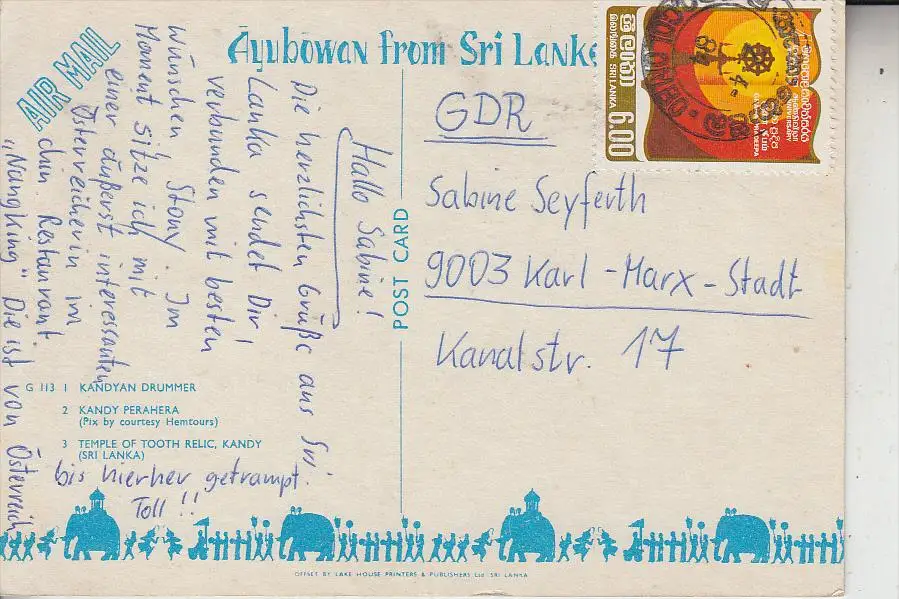 AIR MAIL
Ayubowan from Sri Lanka
Hallo Sabine!
Die herzlichsten Grüße aus Sri
Lanka sendet Dir,
verbunden mit besten
Wünschen Stony. Im
Moment sitze ich mit
einer äußerst interessanten
Österreicherin im
chin. Restaurant
„Nangking" Die ist von Österreich
bis hierher getrampt.
Toll!!
POST CARD
GDR
Sabine Seyferth
9003 Karl-Marx-Stadt
Kanalstr. 17
ශ්‍රී ලංකා
இலங்கை SRI LANKA
6.00
ANNIVERSARY
G 113 1 KANDYAN DRUMMER
2 KANDY PERAHERA
(Pix by courtesy Hemtours)
3 TEMPLE OF TOOTH RELIC, KANDY
(SRI LANKA)
OFFSET BY LAKE HOUSE PRINTERS & PUBLISHERS Ltd. SRI LANKA